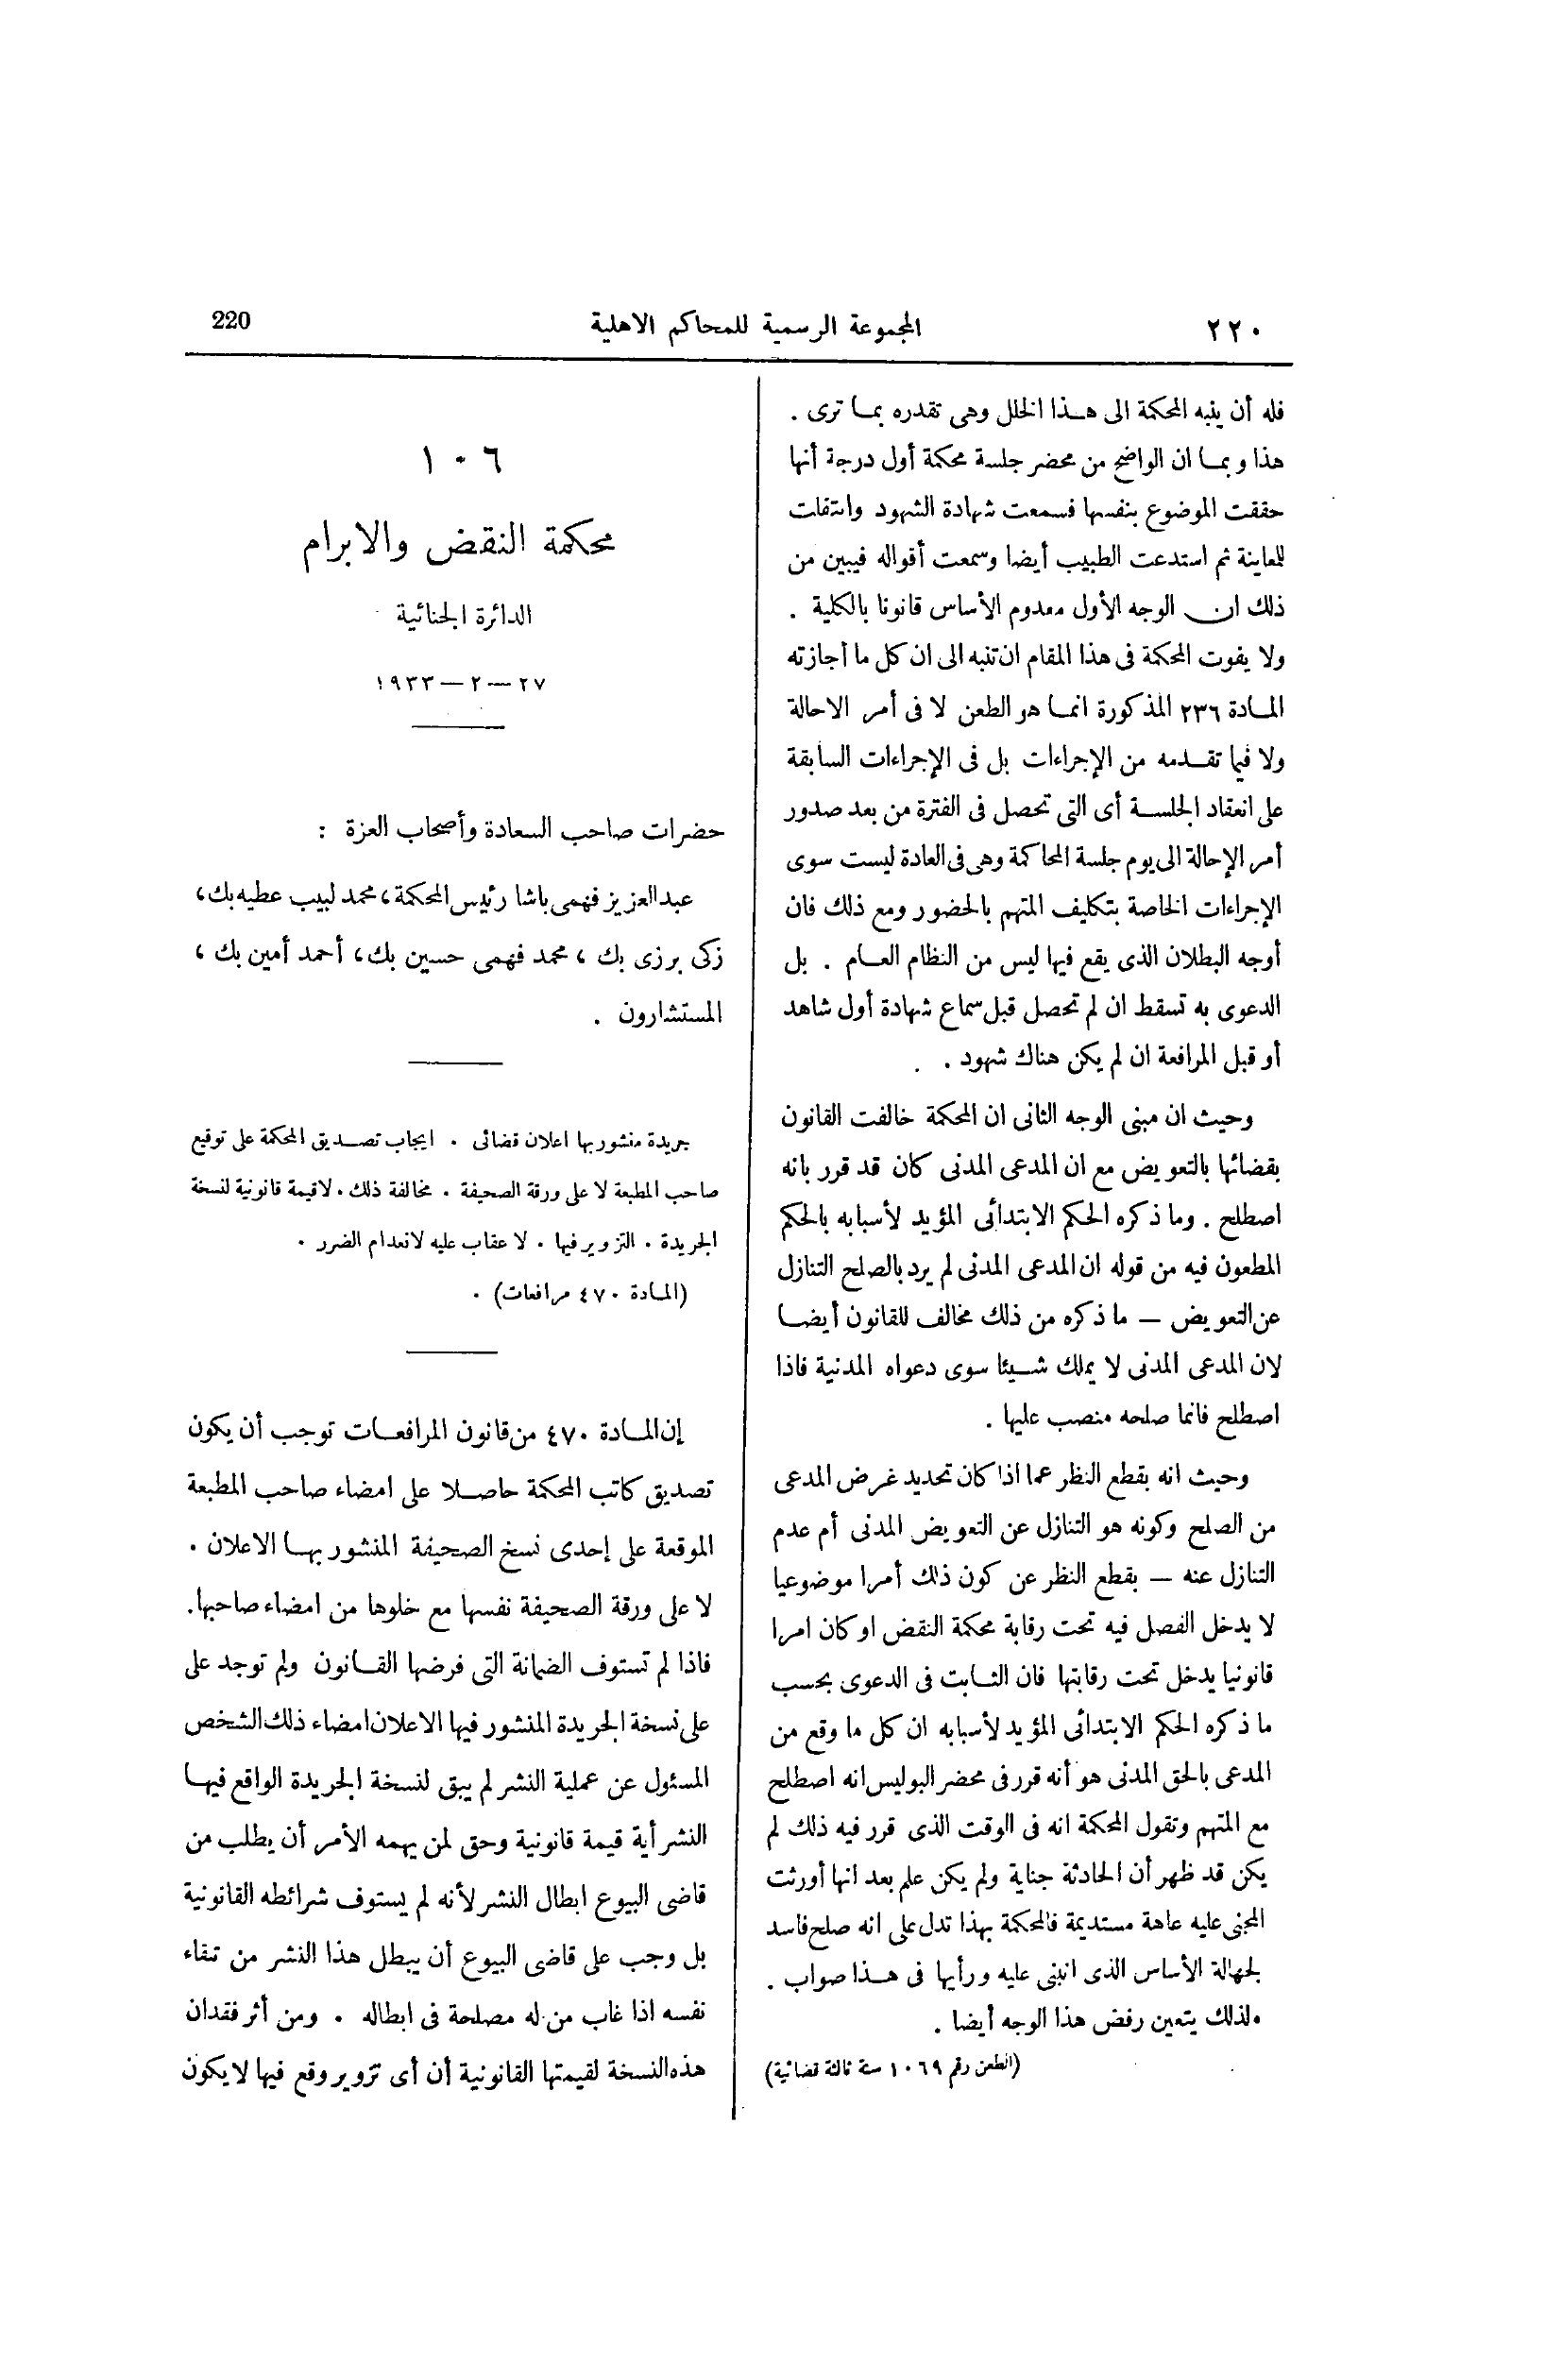 ٢٢٠
المجموعة الرسمية للمحاكم الاهلية
220
فله أن ينبه المحكمة الى هذا الخلل وهى تقدره بما ترى .
هذا وبما ان الواضح من محضر جلسة محكمة أول درجة أنها
حققت الموضوع بنفسها فسمعت شهادة الشهود وانتقلت
للمعاينة ثم استدعت الطبيب أيضا وسمعت أقواله فيبين من
ذلك ان الوجه الأول معدوم الأساس قانونا بالكلية .
ولا يفوت المحكمة فى هذا المقام ان تنبه الى ان كل ما أجازته
المادة ٢٣٦ المذكورة انما هو الطعن لا فى أمر الاحالة
ولا فيما تقدمه من الإجراءات بل فى الإجراءات السابقة
على انعقاد الجلسة أى التى تحصل فى الفترة من بعد صدور
أمر الإحالة الى يوم جلسة المحاكمة وهى فى العادة ليست سوى
الإجراءات الخاصة بتكليف المتهم بالحضور ومع ذلك فان
أوجه البطلان الذى يقع فيها ليس من النظام العام . بل
الدعوى به تسقط ان لم تحصل قبل سماع شهادة أول شاهد
أو قبل المرافعة ان لم يكن هناك شهود .
وحيث ان مبنى الوجه الثانى ان المحكمة خالفت القانون
بقضائها بالتعويض مع ان المدعى المدنى كان قد قرر بانه
اصطلح . وما ذكره الحكم الابتدائى المؤيد لأسبابه بالحكم
المطعون فيه من قوله ان المدعى المدنى لم يرد بالصلح التنازل
عن التعويض — ما ذكره من ذلك مخالف للقانون أيضا
لان المدعى المدنى لا يملك شيئا سوى دعواه المدنية فاذا
اصطلح فانما صلحه منصب عليها .
وحيث انه بقطع النظر عما اذا كان تحديد غرض المدعى
من الصلح وكونه هو التنازل عن التعويض المدنى أم عدم
التنازل عنه — بقطع النظر عن كون ذلك أمرا موضوعيا
لا يدخل الفصل فيه تحت رقابة محكمة النقض او كان امرا
قانونيا يدخل تحت رقابتها فان الثابت فى الدعوى بحسب
ما ذكره الحكم الابتدائى المؤيد لأسبابه ان كل ما وقع من
المدعى بالحق المدنى هو أنه قرر فى محضر البوليس انه اصطلح
مع المتهم وتقول المحكمة انه فى الوقت الذى قرر فيه ذلك لم
يكن قد ظهر أن الحادثة جناية ولم يكن علم بعد انها أورثت
المجنى عليه عاهة مستديمة فالمحكمة بهذا تدل على انه صلح فاسد
لجهالة الأساس الذى انبنى عليه ورأيها فى هذا صواب .
ولذلك يتعين رفض هذا الوجه أيضا .
(الطعن رقم ١٠٦٩ سنة ثالثة قضائية)
١٠٦
محكمة النقض والابرام
الدائرة الجنائية
٢٧ — ٢ — ١٩٣٣
حضرات صاحب السعادة وأصحاب العزة :
عبد العزيز فهمى باشا رئيس المحكمة، محمد لبيب عطيه بك،
زكى برزى بك ، محمد فهمى حسين بك، أحمد أمين بك ،
المستشارون .
جريدة منشور بها اعلان قضائى . ايجاب تصديق المحكمة على توقيع
صاحب المطبعة لا على ورقة الصحيفة . مخالفة ذلك . لا قيمة قانونية لنسخة
الجريدة . التزوير فيها . لا عقاب عليه لانعدام الضرر .
(المادة ٤٧٠ مرافعات) .
إن المادة ٤٧٠ من قانون المرافعات توجب أن يكون
تصديق كاتب المحكمة حاصلا على امضاء صاحب المطبعة
الموقعة على إحدى نسخ الصحيفة المنشور بها الاعلان .
لا على ورقة الصحيفة نفسها مع خلوها من امضاء صاحبها.
فاذا لم تستوف الضمانة التى فرضها القانون ولم توجد على
على نسخة الجريدة المنشور فيها الاعلان امضاء ذلك الشخص
المسئول عن عملية النشر لم يبق لنسخة الجريدة الواقع فيها
النشر أية قيمة قانونية وحق لمن يهمه الأمر أن يطلب من
قاضى البيوع ابطال النشر لأنه لم يستوف شرائطه القانونية
بل وجب على قاضى البيوع أن يبطل هذا النشر من تلقاء
نفسه اذا غاب من له مصلحة فى ابطاله . ومن أثر فقدان
هذه النسخة لقيمتها القانونية أن أى تزوير وقع فيها لا يكون